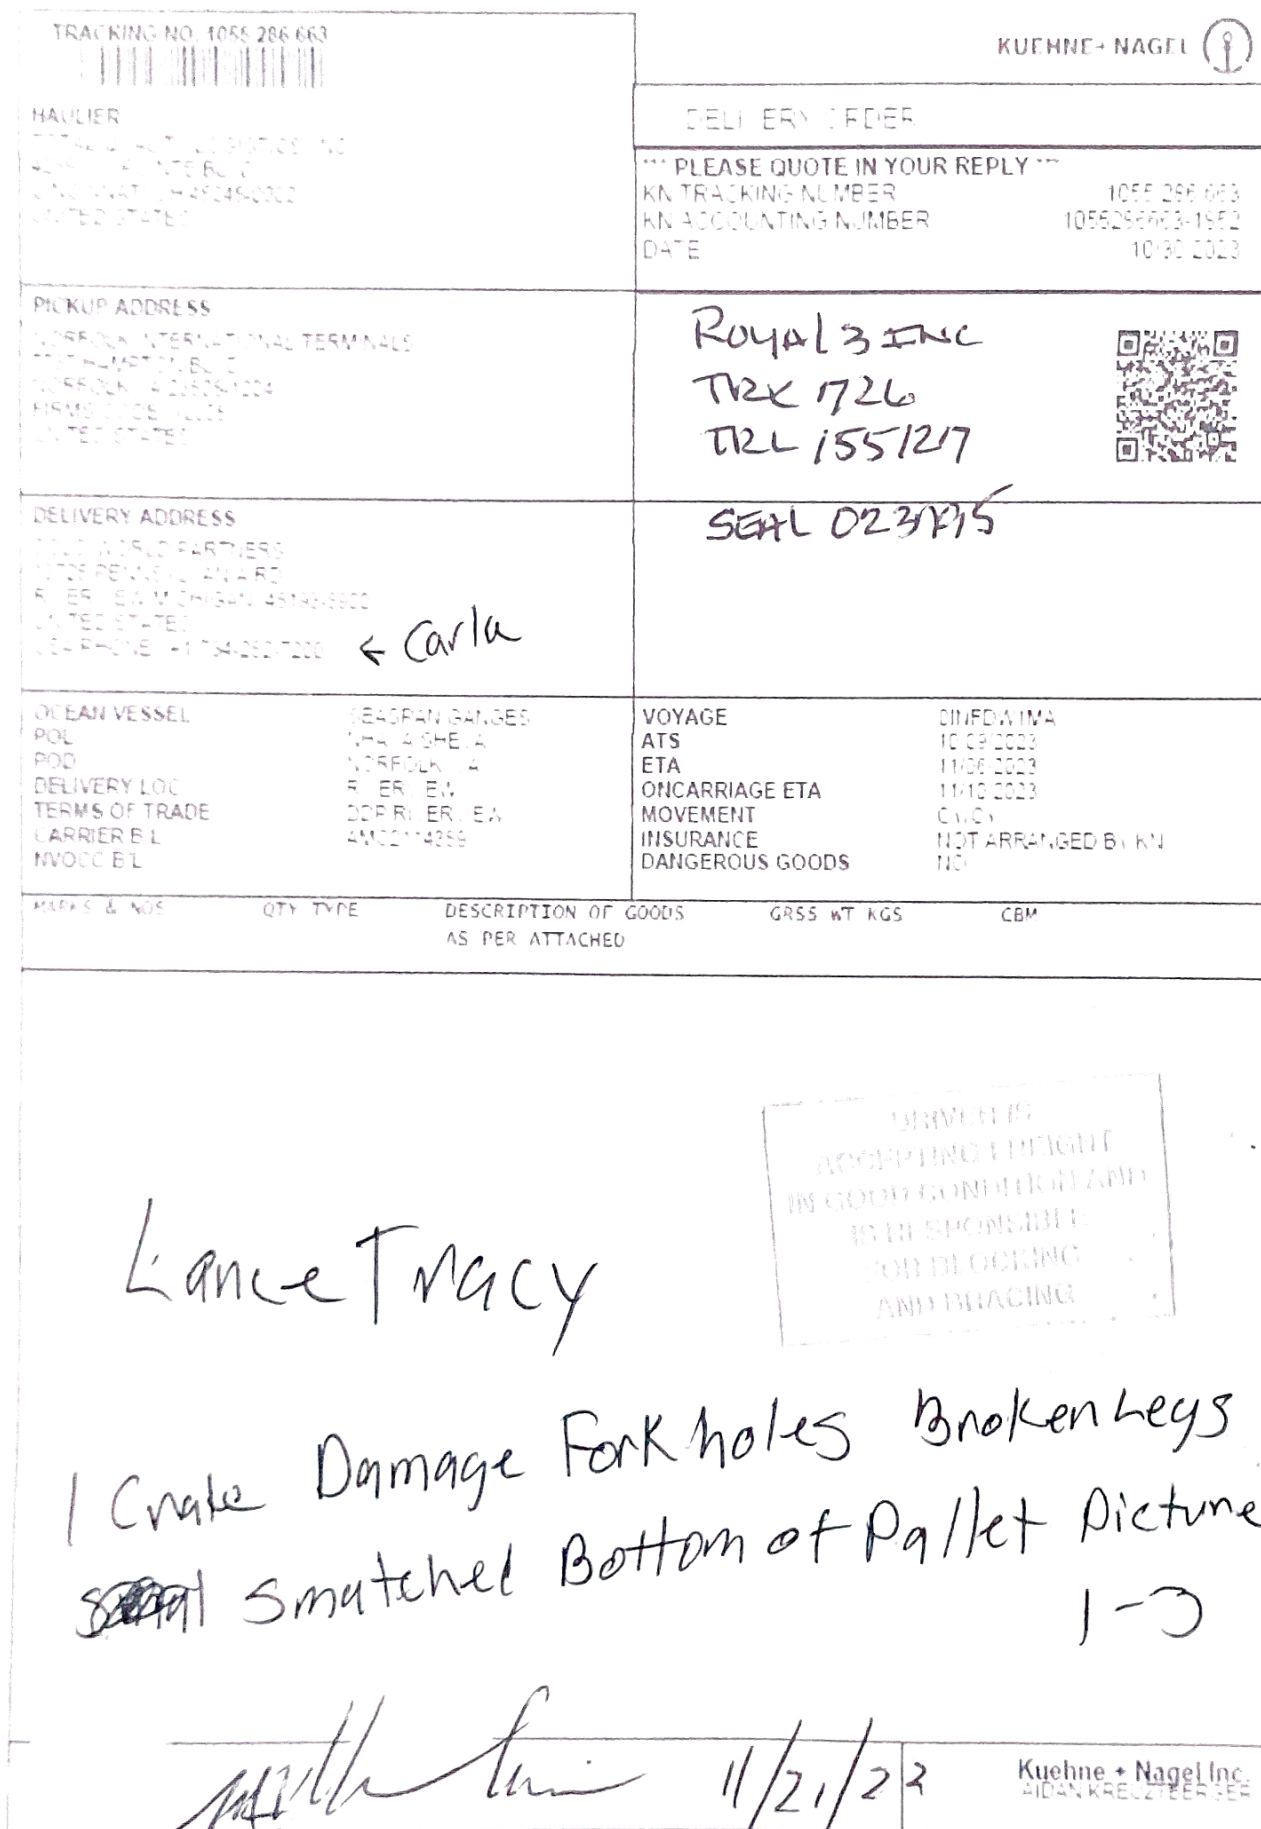 TRACKING NO. 1055 286 663
KUEHNE + NAGEL
HAULIER
UNITED STATES
DELIVERY ORDER
*** PLEASE QUOTE IN YOUR REPLY ***
KN TRACKING NUMBER 1055 286 663
KN ACCOUNTING NUMBER 1055286663-1952
DATE 10/30/2023
PICKUP ADDRESS
NORFOLK INTERNATIONAL TERMINALS
UNITED STATES
Royal 3 INC
TRK 1726
TRL 155/217
SEAL
DELIVERY ADDRESS
WORLD PARTNERS
UNITED STATES
← Carla
OCEAN VESSEL SEASPAN GANGES
POL NHAVA SHEVA
POD NORFOLK, VA
DELIVERY LOC RIVERVIEW
TERMS OF TRADE DDP RIVERVIEW
CARRIER B/L
NVOCC B/L
VOYAGE
ATS 10/09/2023
ETA 11/06/2023
ONCARRIAGE ETA 11/10/2023
MOVEMENT CY/CY
INSURANCE NOT ARRANGED BY KN
DANGEROUS GOODS NO
MARKS & NOS QTY TYPE DESCRIPTION OF GOODS GRSS WT KGS CBM
AS PER ATTACHED
DRIVER IS
ACCEPTING FREIGHT
IN GOOD CONDITION AND
IS RESPONSIBLE
FOR BLOCKING
AND BRACING
Lance Tracy
1 Crate Damage Fork holes Broken Legs
smatched Bottom of Pallet Picture
1-3
11/21/23
Kuehne + Nagel Inc.
AIDAN KREUZTBERGER